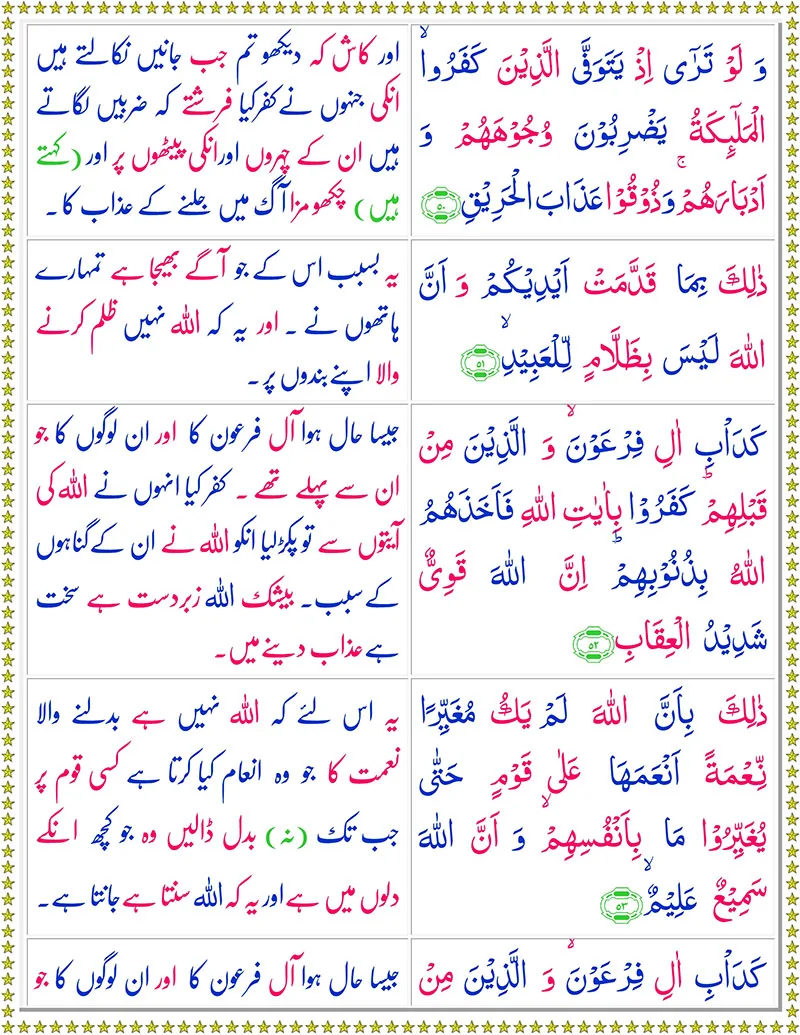 وَ لَوْ تَرٰۤی اِذْ یَتَوَفَّی الَّذِیْنَ كَفَرُواۙ
الْمَلٰٓىِٕكَةُ یَضْرِبُوْنَ وُجُوْهَهُمْ وَ
اَدْبَارَهُمْۚ وَ ذُوْقُوْا عَذَابَ الْحَرِیْقِ ۵۰
اور کاش کہ دیکھو تم جب جانیں نکالتے ہیں
انکی جنہوں نے کفر کیا فرشتے کہ ضربیں لگاتے
ہیں ان کے چہروں اورانکی پیٹھوں پر اور (کہتے
ہیں) چکھو مزا آگ میں جلنے کے عذاب کا۔
ذٰلِكَ بِمَا قَدَّمَتْ اَیْدِیْكُمْ وَ اَنَّ
اللهَ لَیْسَ بِظَلَّامٍ لِّلْعَبِیْدِۙ ۵۱
یہ بسبب اس کے جو آگے بھیجا ہے تمہارے
ہاتھوں نے ۔ اور یہ کہ اللہ نہیں ظلم کرنے
والا اپنے بندوں پر۔
كَدَاْبِ اٰلِ فِرْعَوْنَۙ وَ الَّذِیْنَ مِنْ
قَبْلِهِمْؕ كَفَرُوْا بِاٰیٰتِ اللهِ فَاَخَذَهُمُ
اللهُ بِذُنُوْبِهِمْؕ اِنَّ اللهَ قَوِیٌّ
شَدِیْدُ الْعِقَابِ ۵۲
جیسا حال ہوا آل فرعون کا اور ان لوگوں کا جو
ان سے پہلے تھے ۔ کفر کیا انہوں نے اللہ کی
آیتوں سے تو پکڑلیا انکو اللہ نے ان کے گناہوں
کے سبب۔ بیشک اللہ زبردست ہے سخت
ہے عذاب دینے میں۔
ذٰلِكَ بِاَنَّ اللهَ لَمْ یَكُ مُغَیِّرًا
نِّعْمَةً اَنْعَمَهَا عَلٰی قَوْمٍ حَتّٰی
یُغَیِّرُوْا مَا بِاَنْفُسِهِمْۙ وَ اَنَّ اللهَ
سَمِیْعٌ عَلِیْمٌۙ ۵۳
یہ اس لئے کہ اللہ نہیں ہے بدلنے والا
نعمت کا جو وہ انعام کیا کرتا ہے کسی قوم پر
جب تک (نہ) بدل ڈالیں وہ جو کچھ انکے
دلوں میں ہے اور یہ کہ اللہ سنتا ہے جانتا ہے۔
كَدَاْبِ اٰلِ فِرْعَوْنَۙ وَ الَّذِیْنَ مِنْ
جیسا حال ہوا آل فرعون کا اور ان لوگوں کا جو